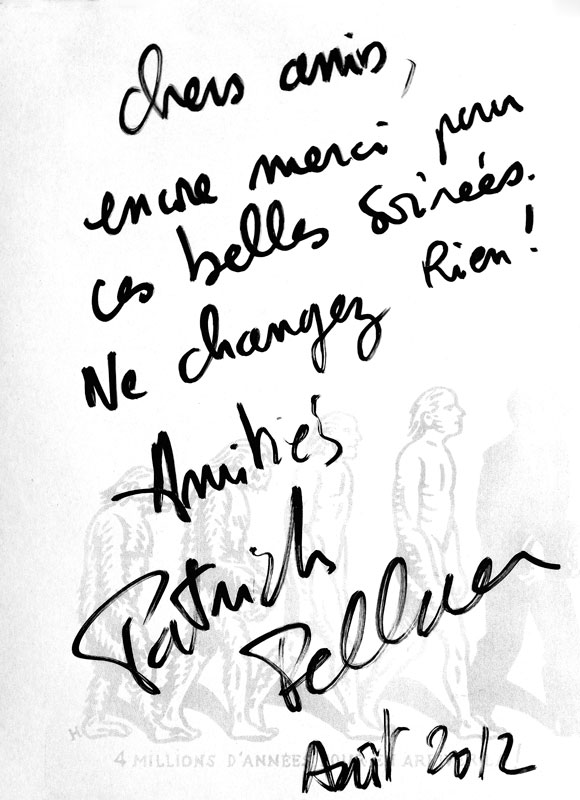 chers amis,
encore merci pour
ces belles soirées.
Ne changez Rien !
Amitiés
Patrick
Pelloux
Août 2012
4 MILLIONS D'ANNÉES